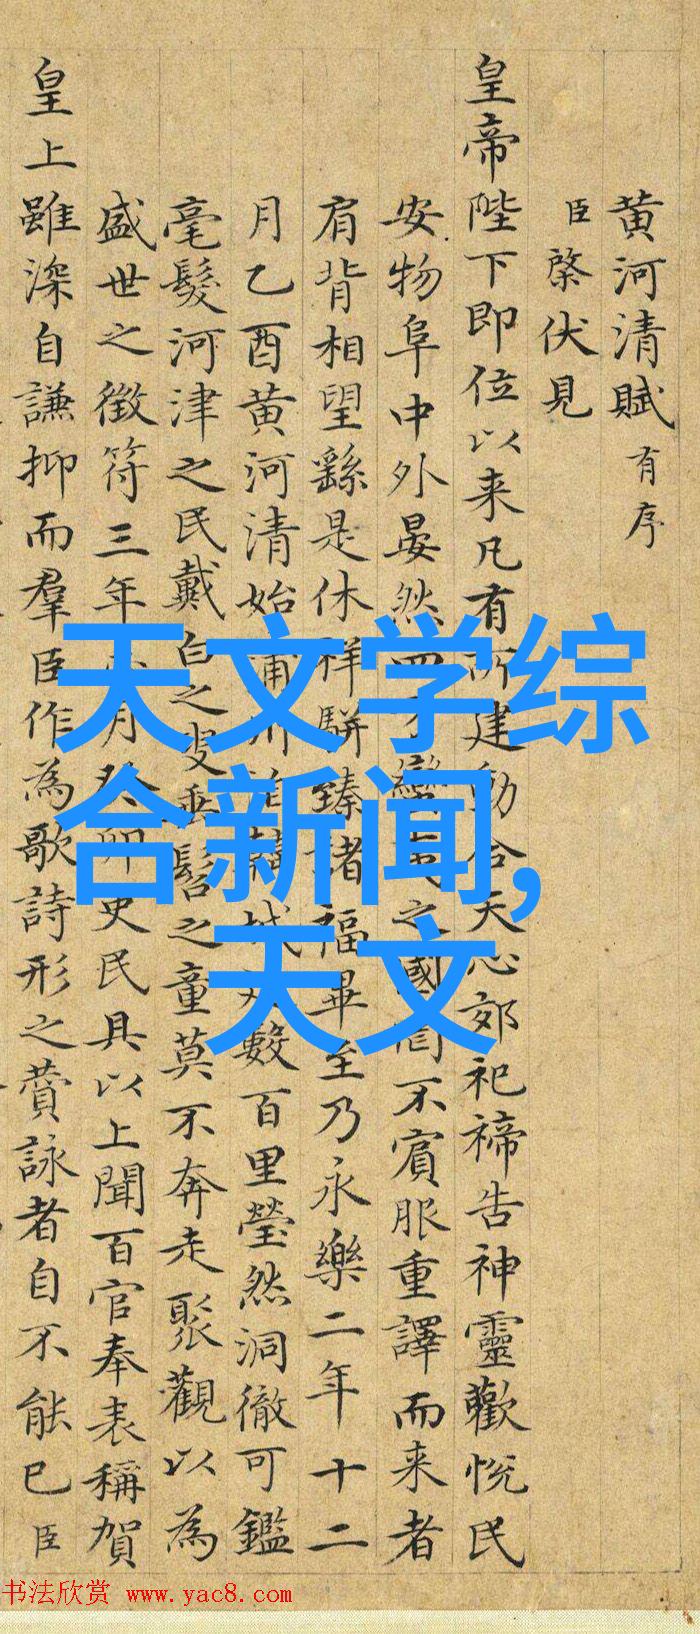 黄河清賦有序
臣棨伏見
皇帝陛下即位以来凡有所建動合天心郊祀禘告神靈歡悅民
安物阜中外晏然四蠻之國罔不賓服重譯而来者
肩背相望繇是休祥駢臻諸福畢至乃永樂二年十二
月乙酉黄河清始蒲州韓城數百里瑩然洞徹可鑑
毫髮河津之民戴白之叟垂髫之童莫不奔走聚觀以為
盛世之徵符三年月癸卯史民具以上聞百官奉表稱賀
皇上雖深自謙抑而羣臣作為歌詩形之賛詠者自不能已臣
天文学综
合新闻,
天文
书法欣赏 www.yac8.com